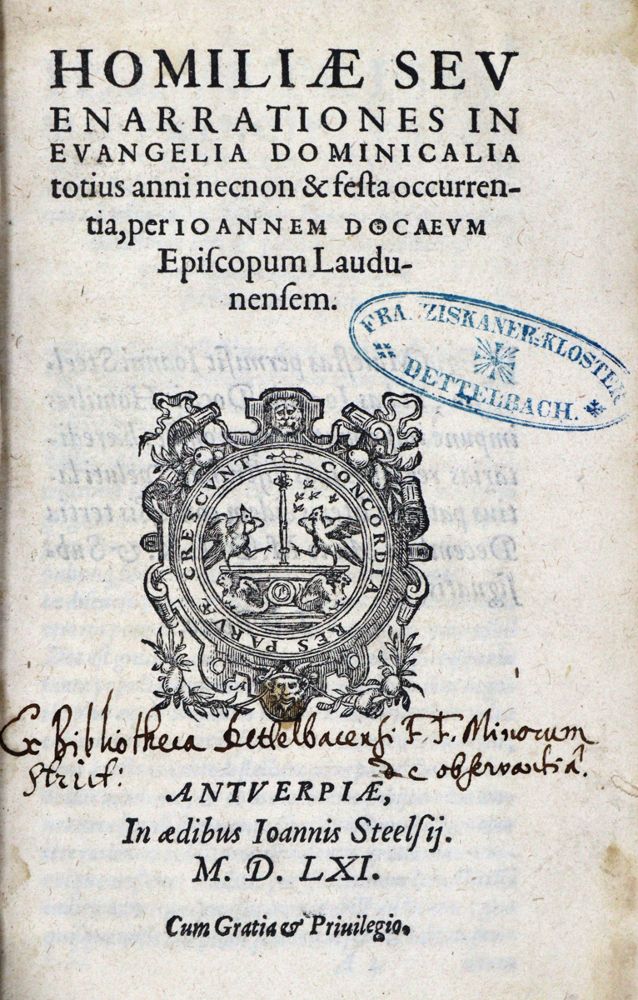 HOMILIÆ SEV
ENARRATIONES IN
EVANGELIA DOMINICALIA
totius anni necnon & festa occurren-
tia, per IOANNEM DOCAEVM
Episcopum Laudu-
nensem.
FRANZISKANER-KLOSTER
DETTELBACH.
CONCORDIA RES PARVÆ CRESCVNT.
Ex Bibliotheca Dettelbacensi F. F. Minorum
Strict: de observantia.
ANTVERPIÆ,
In ædibus Ioannis Steelsij.
M. D. LXI.
Cum Gratia & Priuilegio.